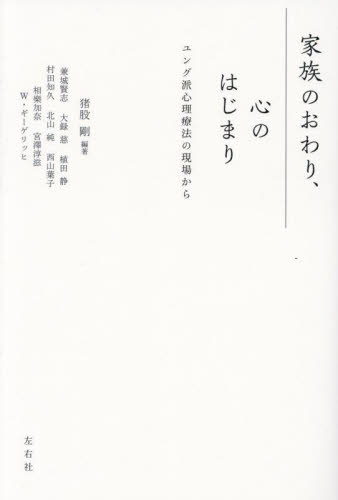 家族のおわり、
心の
はじまり
ユング派心理療法の現場から
猪股 剛 編著
兼城賢志 大録 慈 植田 静
村田知久 北山 純 西山葉子
相樂加奈 宮澤淳滋
W・ギーゲリッヒ
左右社